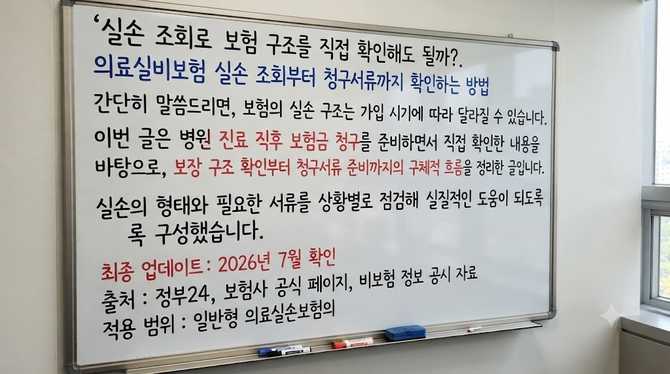 ‘실손 조회로 보험 구조를 직접 확인해도 될까?.
의료실비보험 실손 조회부터 청구서류까지 확인하는 방법
간단히 말씀드리면, 보험의 실손 구조는 가입 시기에 따라 달라질 수 있습니다.
이번 글은 병원 진료 직후 보험금 청구를 준비하면서 직접 확인한 내용을
바탕으로, 보장 구조 확인부터 청구서류 준비까지의 구체적 흐름을 정리한 글입니다.
실손의 형태와 필요한 서류를 상황별로 점검해 실질적인 도움이 되도록
록 구성했습니다.
최종 업데이트: 2026년 7월 확인
출처 : 정부24, 보험사 공식 페이지, 비보험 정보 공시 자료
적용 범위 : 일반형 의료실손보험의